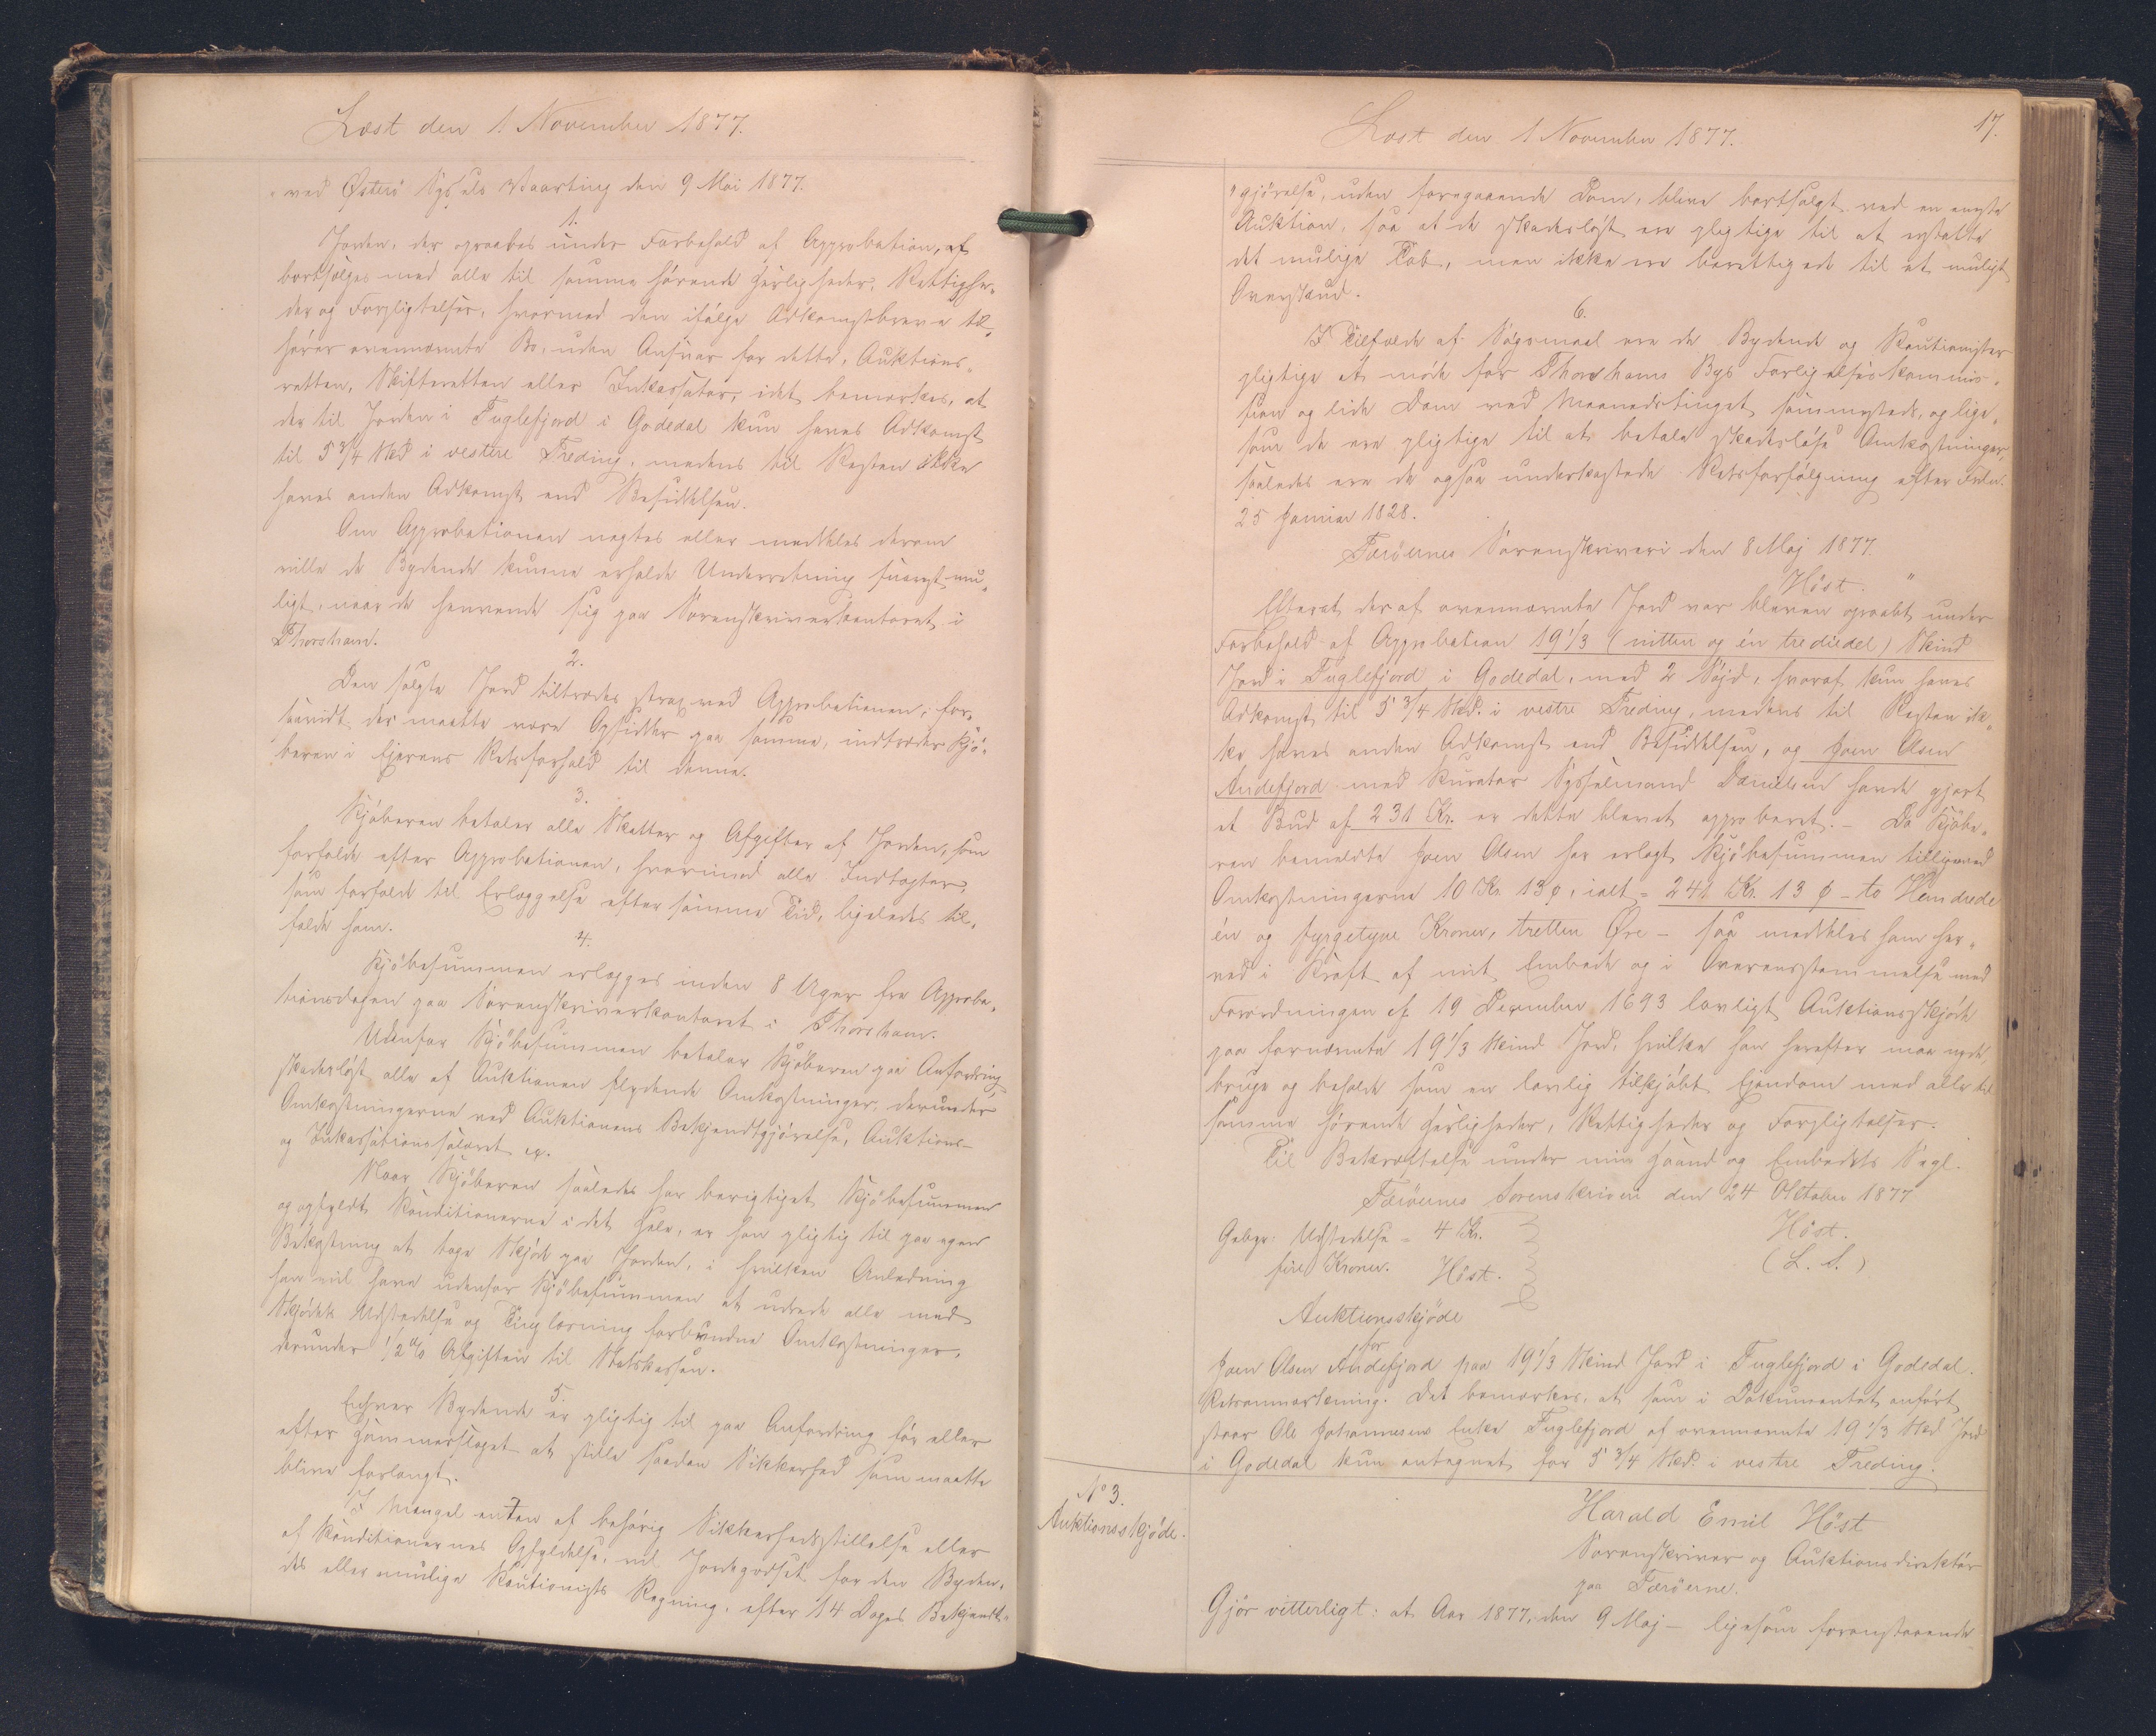 Læst den 1. November 1877.
"ved Østerø Syssels Vaarting den 9 Mai 1877.
1.
Jorden, der opraabes under Forbehold af Approbation, af
bortsælges med alle til samme hørende Herligheder, Rettighe„
der og Forpligtelser, hvormed den ifølge Adkomstbreve til„
hører ovennævnte Bo, uden Ansvar for dette, Auktions„
retten, Skifteretten eller Inkassator, idet bemærkes, at
der til Jorden i Fuglefjord i Godedal kun haves Adkomst
til 5 3/4 Skd i vestere Treding, medens til Resten ikke
haves anden Adkomst end Besiddelsen.
Om Approbationen negtes eller meddeles derom
ville de Bydende kunne erholde Underretning snarest mu„
ligt, naar de henvende sig paa Sorenskriverkontoret i
Thorshavn.
2.
Den solgte Jord tiltrædes strax ved Approbationen; for„
saavidt der maatte være Opsidder paa samme, indtræder Kjö„
beren i Ejerens Retsforhold til denne.
3.
Kjøberen betaler alle Skatter og Afgifter af Jorden, som
forfalde efter Approbationen, hvorimod alle Indtægter,
som forfalde til Erlæggelse efter samme Tid, ligeledes til„
falde ham.
4.
Kjöbesummen erlægges inden 8 Uger fra Approba„
tionsdagen paa Sorenskriverkontoret i Thorshavn.
Udenfor Kjöbesummen betaler Kjøberen paa Anfordring
skadesløst alle af Auktionen flydende Omkostninger, derunder
Omkostningerne ved Auktionens Bekjendtgjörelse, Auktions-
og Inkassationssalæret &c.
Naar Kjöberen saaledes har berigtiget Kjöbesummen
og opfyldt Konditionerne i det Hele, er han pligtig til paa egen
Bekostning at tage Skjøde paa Jorden, i hvilken Anledning
han vil have udenfor Kjöbesummen at udrede alle med
Skjödets Udstedelse og Tinglæsning forbundne Omkostninger,
derunder 1/2 % Afgiften til Statskassen.
5.
Enhver Bydende er pligtig til paa Anfordring før eller
efter Hammerslaget at stille saadan Sikkerhed som maatte
blive forlangt.
I Mangel enten af behørig Sikkerhedsstillelse eller
af Konditionernes Opfyldelse, vil Jordegodset for den Byden„
des eller mulige Kautionists Regning, efter 14 Dages Bekjendt„
17.
Læst den 1 November 1877.
"gjörelse, uden foregaaende Dom, blive bortsolgt ved en eneste
Auktion, saa at de skadesløst ere pligtige til at erstatte
det mulige Tab, men ikke ere berettigede til et muligt
Overskud.
6.
I Tilfælde af Søgsmaal ere de Bydende og Kautionister
pligtige at møde for Thorshavns Bys Forligelseskommis„
sion og lide Dom ved Maanedstinget sammesteds, og lige„
som de ere pligtige til at betale skadesløse Omkostninger,
saaledes ere de ogsaa underkastede Retsforfølgning efter Frdn.
25 Januar 1828.
Færöernes Sorenskriveri den 8 Maj 1877.
Höst. "
Efterat der af ovennævnte Jord var bleven opraabt under
Forbehold af Approbation 19 1/3 (nitten og én trediedel) Skind
Jord i Fuglefjord i Godedal, med 2 Søjd, hvoraf kun haves
Adkomst til 5 3/4 Skd. i vestre Treding, medens til Resten ik„
ke haves anden Adkomst end Besiddelsen, og Joen Olsen
Andefjord med Kurator Sysselmand Danielsen havde gjort
et Bud af 231 Kr. er dette blevet approberet. - Da Kjøbe„
ren bemeldte Joen Olsen har erlagt Kjöbesummen tilligemed
Omkostningerne 10 Kr 13 ø, ialt = 241 Kr. 13 ø - to Hundrede
én og fyrgetyve Kroner, tretten Øre - saa meddeles ham her„
ved i Kraft af mit Embede og i Overensstemmelse med
Forordningen af 19 December 1693 lovligt Auktionsskjøde
paa fornævnte 19 1/3 Skind Jord, hvilke han herefter maa nyde,
bruge og beholde som en lovlig tilkjøbt Ejendom med alle til
samme hørende Herligheder, Rettigheder og Forpligtelser.
Til Bekræftelse under min Haand og Embedets Segl.
Færöernes Sorenskriveri den 24 Oktober 1877
Höst.
(L. S.)
Gebyr: Udstedelse = 4 Kr.
fire Kroner. Höst.
Auktionsskjöde
for
Joen Olsen Andefjord paa 19 1/3 Skind Jord i Fuglefjord i Godedal.
Retsanmærkning. Det bemærkes, at som i Dokumentet anført
staar Ole Johannesens Enke Fuglefjord af ovennævnte 19 1/3 Skd Jord
i Godedal kun antegnet for 5 3/4 Skd. i vestre Treding.
No 3.
Auktionsskjöde.
Harald Emil Höst
Sorenskriver og Auktionsdirektör
paa Færöerne.
Gjör vitterligt: at Aar 1877, den 9 Maj - ligesom foranstaaende